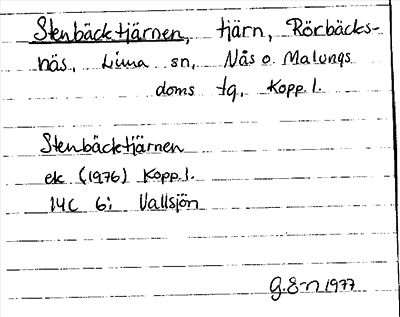 Stenbäcktjärnen, tjärn, Rörbäcks-
näs, Lima sn, Nås o. Malungs
doms tg, Kopp. l.
Stenbäcktjärnen
ek (1976) Kopp. l.
14C 6i Vallsjön
G.E-n 1977